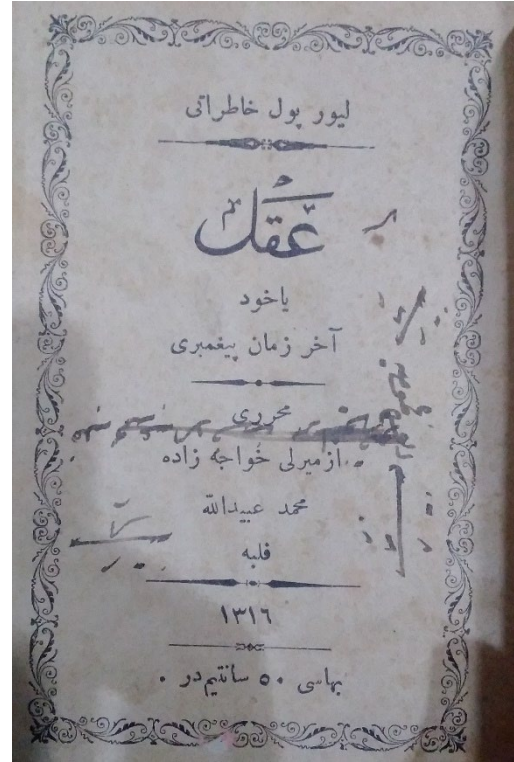 لیور پول خاطراتی
عقل
یاخود
آخر زمان پیغمبری
محرری
ازمیرلی خواجه زاده
محمد عبیدالله
فلبه
١٣١٦
بهاسی ٥٠ سانتیم در .